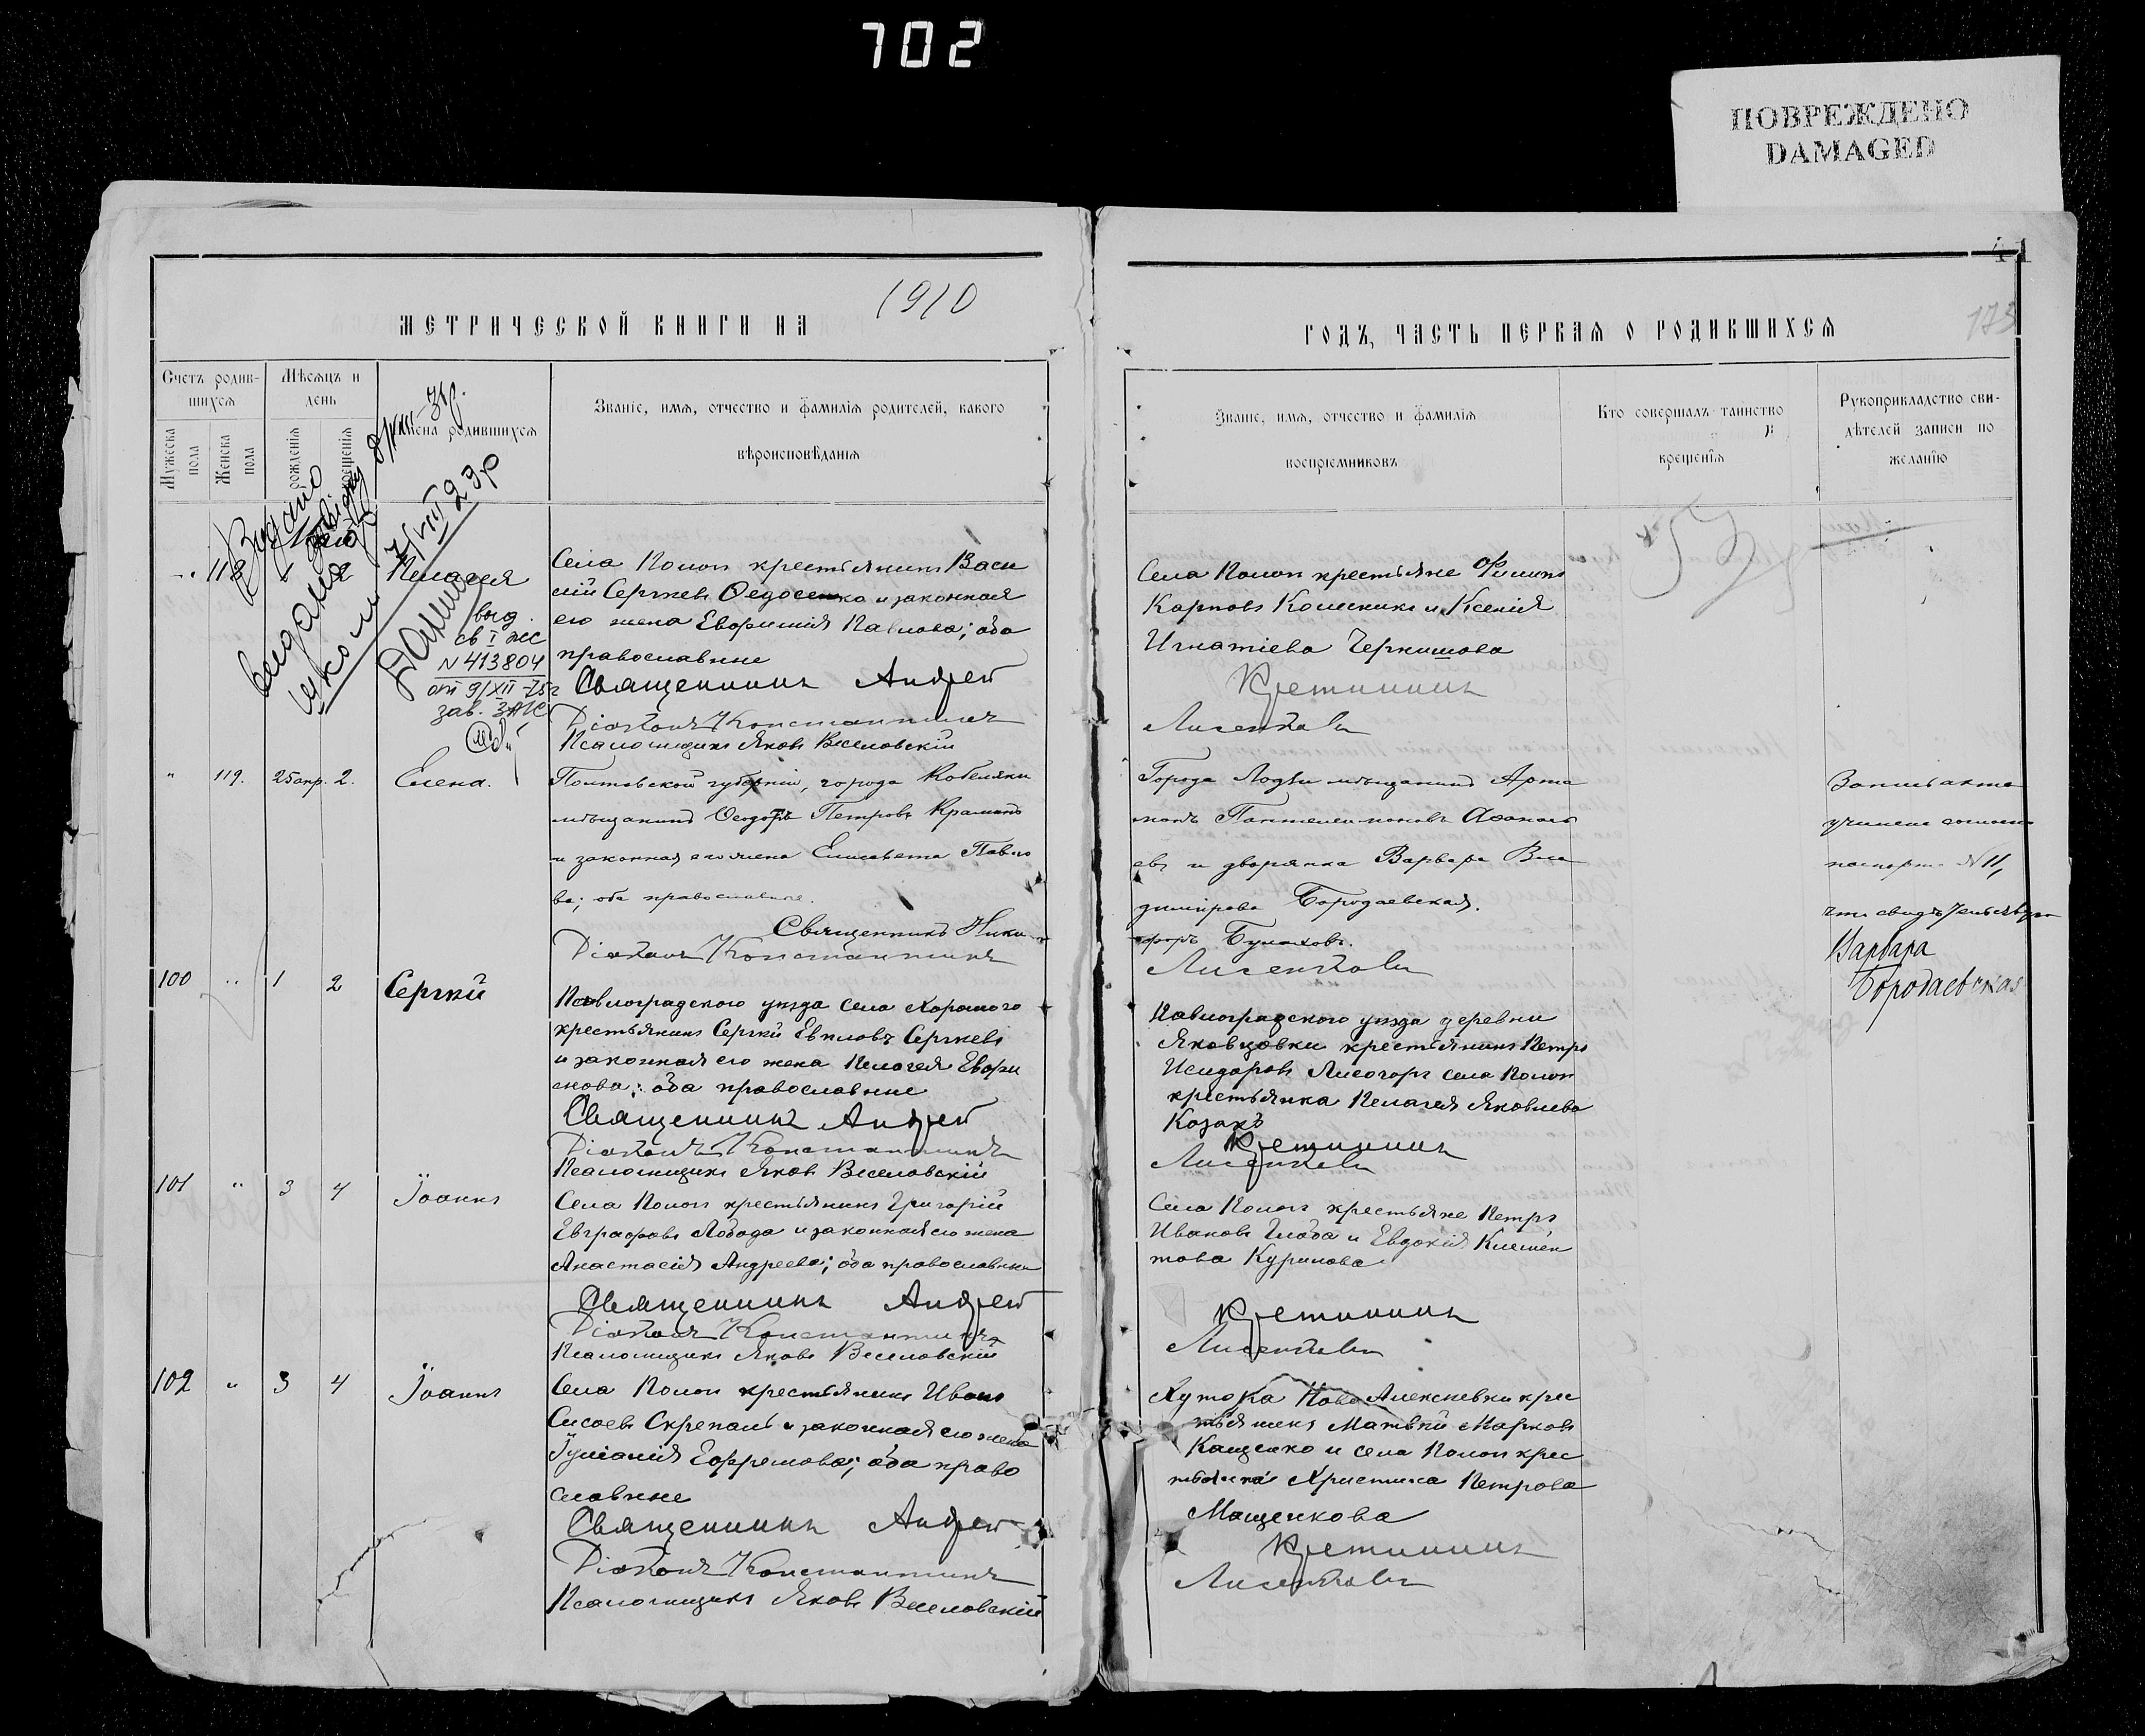 702
ПОВРЕЖДЕНО
DAMAGED
41
173
МЕТРИЧЕСКОЙ КНИГИ НА
1910
ГОДЪ, ЧАСТЬ ПЕРВАЯ О РОДИВШИХСЯ
Счетъ родив-
шихся
Мужеска
пола
Женска
пола
Мѣсяцъ и
день
рожденія
крещенія
Имена родившихся
Званіе, имя, отчество и фамилія родителей, какого
вѣроисповѣданія
Званіе, имя, отчество и фамилія
воспріемниковъ
Кто совершалъ таинство
крещенія
Рукоприкладство сви-
дѣтелей записи по
желанію
118 1 2 Пелагея
7/VIII 23р
выд.
св I
N 413804
от 9/XII
зав. ЗАГС
Села Попопъ крестьянинъ Васи
лій Сергѣевъ Ѳедосенко и законная
его жена Евфимія Павлова; оба
православные
Священникъ Андрей
Діаконъ Константинъ
Псаломщикъ Яковъ Веселовскій
Села Попопъ крестьяне Филипъ
Карповъ Колесникъ и Ксенія
Игнатіева Чернишова
Кретининъ
Лисенковъ
" 119. 25 апр. 2. Елена.
Полтавской губерніи, города Кобеляки
мѣщанинъ Ѳеодоръ Петровъ
и законная его жена Елисавета Павло
ва; оба православные.
Священникъ Ники-
Діаконъ Константинъ
Города Лодзи мѣщанинъ Арта
монъ Пантелеимоновъ
евъ и дворянка Варвара Вла
димірова Бородаевская.
форъ Булаховъ.
Лисенковъ
Запись акта
учинена согласно
паспорта N 11,
Варвара
Бородаевская
100 " 1 2 Сергѣй
Павлоградского уѣзда села Хорошого
крестьянинъ Сергѣй Евиловъ Сергѣевъ
и законная его жена Пелагея Евфи
мова; оба православные
Священникъ Андрей
Діаконъ Константинъ
Псаломщикъ Яковъ Веселовскій
Павлоградского уѣзда деревни
Яковцовки крестьянинъ Петръ
Исидоровъ Лисогоръ села Попопъ
крестьянка Пелагея Яковлева
Козакъ
Кретининъ
Лисенковъ
101 " 3 4 Іоаннъ
Села Попопъ крестьянинъ Григорій
Евграфовъ Лобода и законная его жена
Анастасія Андреева; оба православные
Священникъ Андрей
Діаконъ Константинъ
Псаломщикъ Яковъ Веселовскій
Села Попопъ крестьяне Петръ
Ивановъ Глоба и Евдокія Клемен
това Куринова
Кретининъ
Лисенковъ
102 " 3 4 Іоаннъ
Села Попопъ крестьянинъ Иванъ
Сисоевъ Скрепаль и законная его жена
Іуліанія Ефремова; оба право
славные
Священникъ Андрей
Діаконъ Константинъ
Псаломщикъ Яковъ Веселовскій
Хутора Ново Алексѣевки крес
тьянинъ Матвѣй Марковъ
Кащенко и села Попопъ крес
тьянка Христина Петрова
Мащенкова
Кретининъ
Лисенковъ